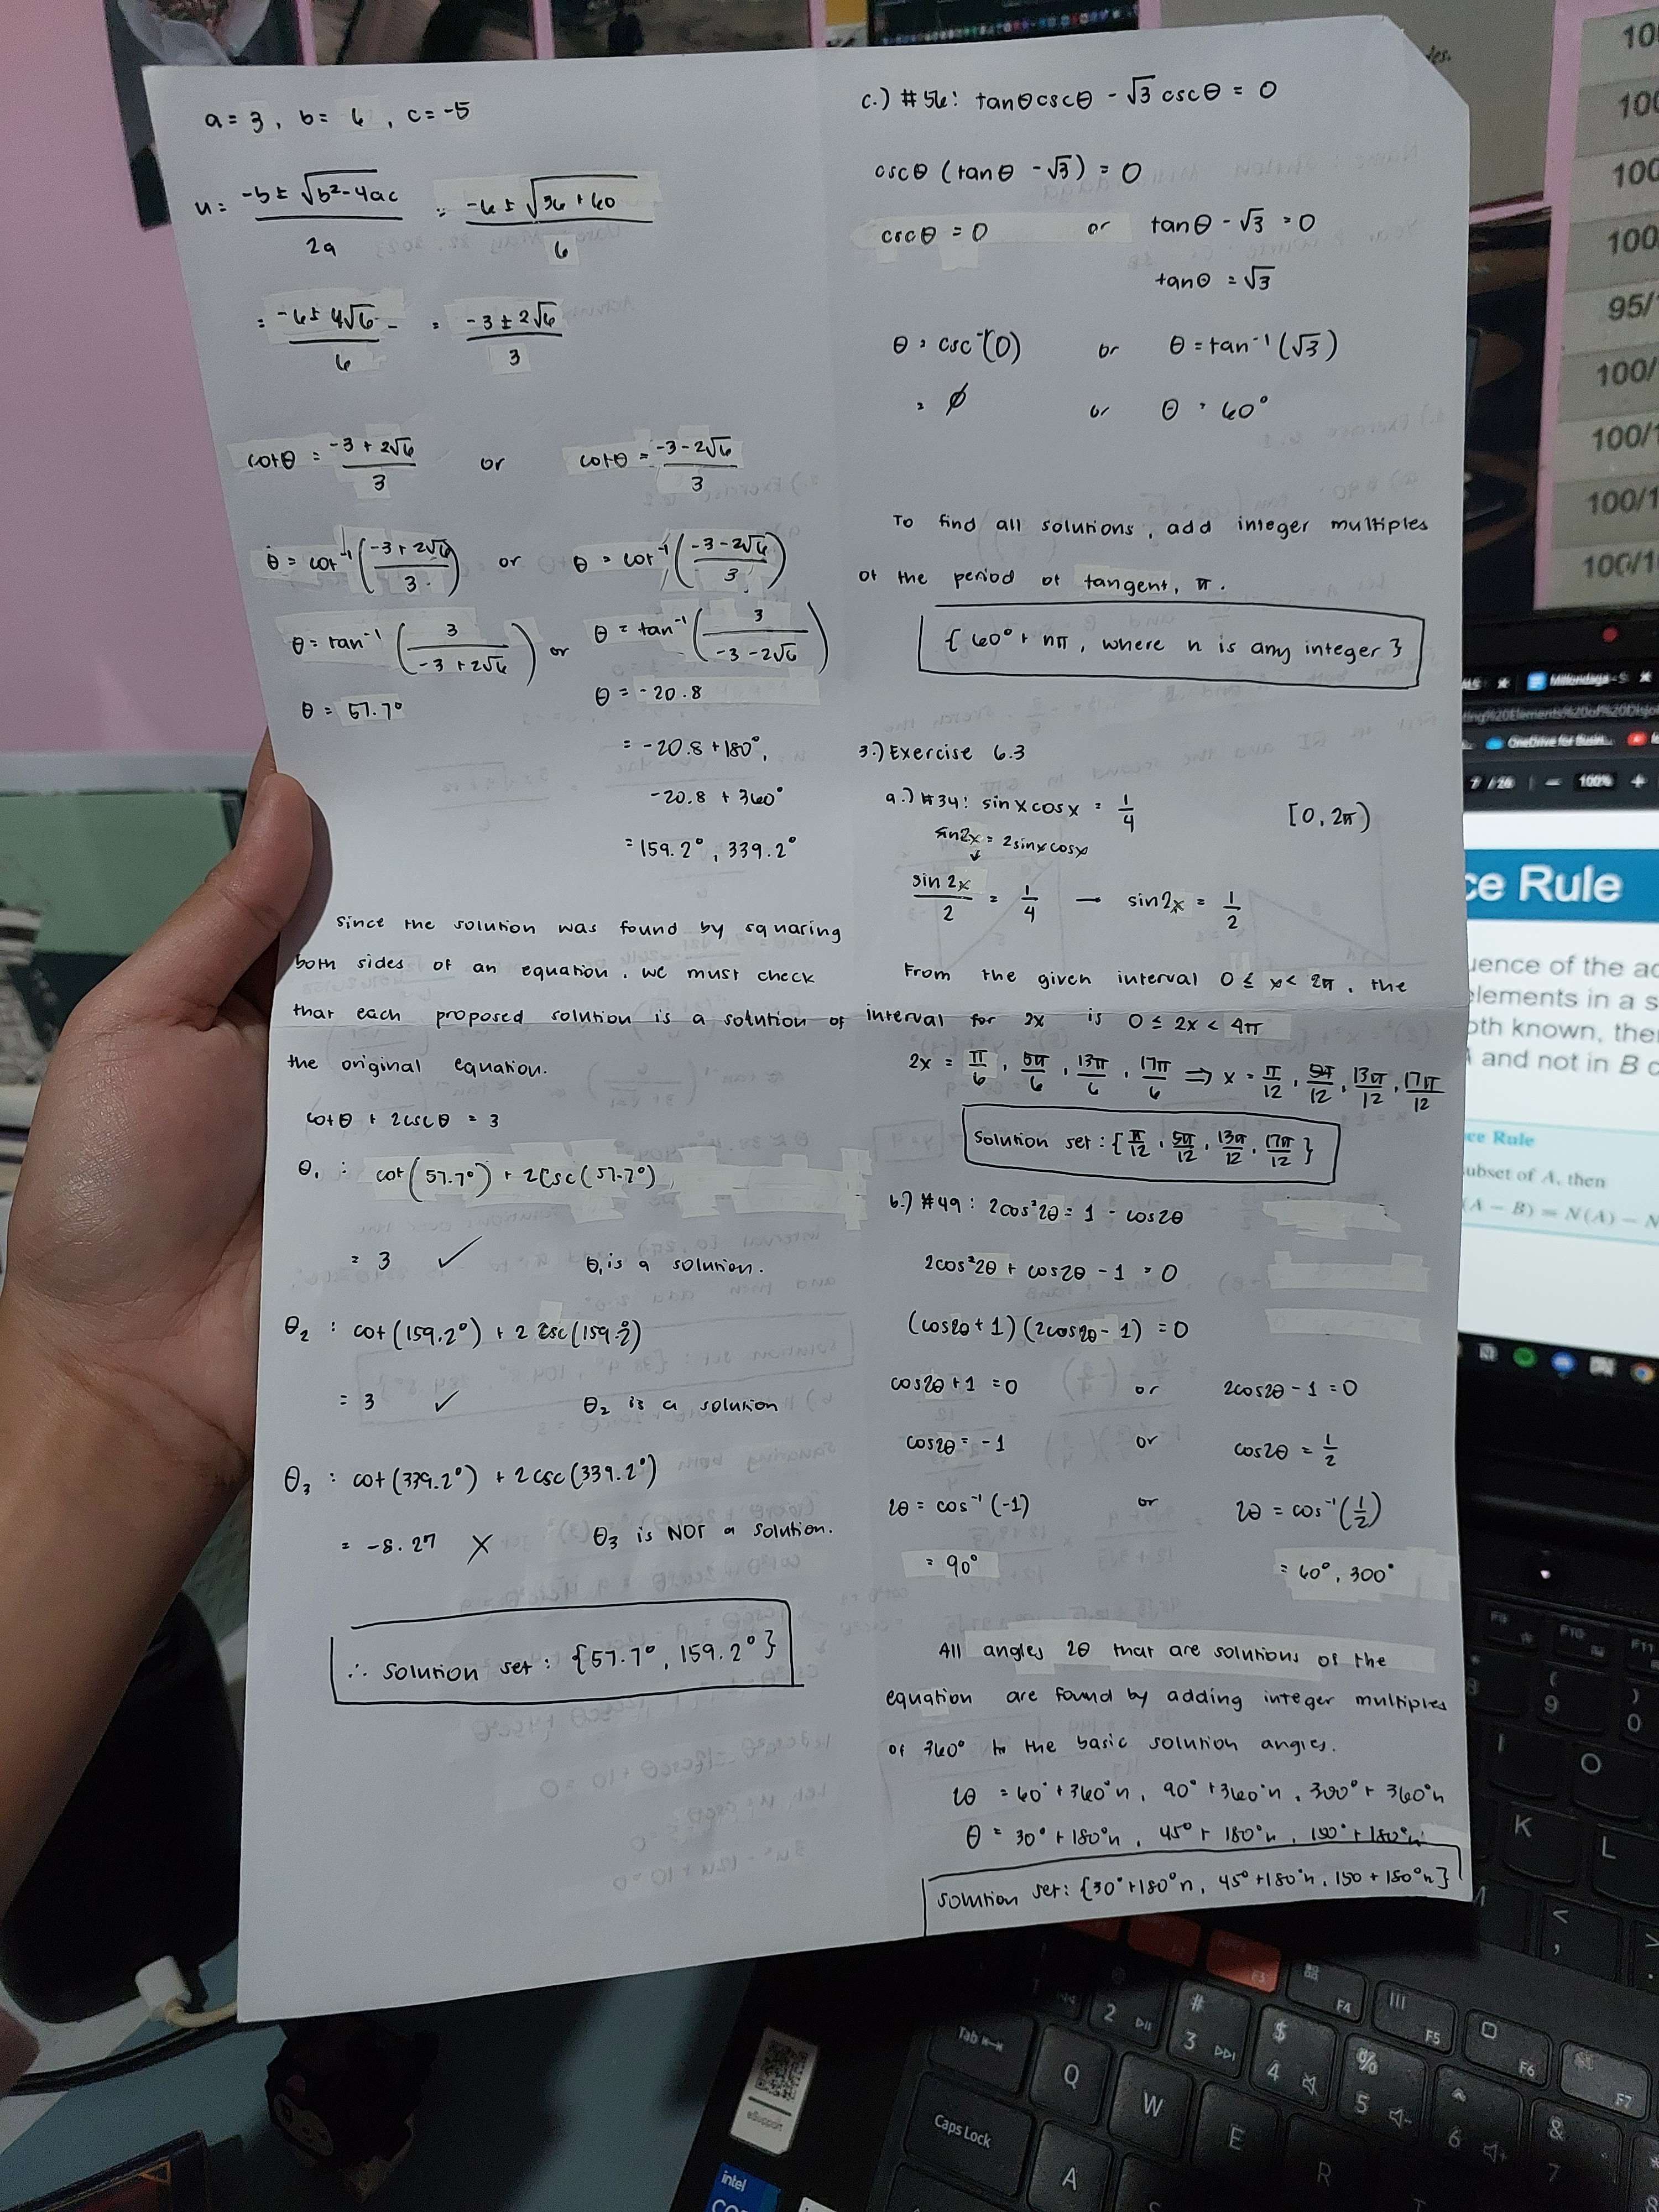 a = 3, b = 6, c = -5
u = -b ± √b²-4ac / 2a = -6 ± √36 + 60 / 6
= -6 ± 4√6 / 6 = -3 ± 2√6 / 3
cotθ = -3 + 2√6 / 3 or cotθ = -3 - 2√6 / 3
θ = cot⁻¹(-3 + 2√6 / 3) or θ = cot⁻¹(-3 - 2√6 / 3)
θ = tan⁻¹(3 / -3 + 2√6) or θ = tan⁻¹(3 / -3 - 2√6)
θ = 57.7° θ = -20.8
= -20.8 + 180°,
-20.8 + 360°
= 159.2°, 339.2°
Since the solution was found by squaring
both sides of an equation, we must check
that each proposed solution is a solution of
the original equation.
cotθ + 2cscθ = 3
θ₁ : cot(57.7°) + 2csc(57.7°)
= 3 ✓ θ₁ is a solution.
θ₂ : cot(159.2°) + 2 csc(159.2°)
= 3 ✓ θ₂ is a solution
θ₃ : cot(339.2°) + 2csc(339.2°)
= -8.27 X θ₃ is NOT a solution.
∴ solution set : {57.7°, 159.2°}
c.) #56: tanθcscθ - √3 cscθ = 0
cscθ (tanθ - √3) = 0
cscθ = 0 or tanθ - √3 = 0
tanθ = √3
θ = csc⁻¹(0) or θ = tan⁻¹(√3)
= ∅ or θ = 60°
To find all solutions, add integer multiples
of the period of tangent, π.
{60° + nπ, where n is any integer}
3.) Exercise 6.3
a.) #34: sinxcosx = 1/4 [0, 2π)
sin2x = 2sinxcosx
sin2x / 2 = 1/4 → sin2x = 1/2
From the given interval 0 ≤ x < 2π, the
interval for 2x is 0 ≤ 2x < 4π
2x = π/6, 5π/6, 13π/6, 17π/6 ⇒ x = π/12, 5π/12, 13π/12, 17π/12
Solution set : {π/12, 5π/12, 13π/12, 17π/12}
b.) #49 : 2cos²2θ = 1 - cos2θ
2cos²2θ + cos2θ - 1 = 0
(cos2θ + 1)(2cos2θ - 1) = 0
cos2θ + 1 = 0 or 2cos2θ - 1 = 0
cos2θ = -1 or cos2θ = 1/2
2θ = cos⁻¹(-1) or 2θ = cos⁻¹(1/2)
= 90° = 60°, 300°
All angles 2θ that are solutions of the
equation are found by adding integer multiples
of 360° to the basic solution angles.
2θ = 60° + 360°n, 90° + 360°n, 300° + 360°n
θ = 30° + 180°n, 45° + 180°n, 150° + 180°n
solution set: {30° + 180°n, 45° + 180°n, 150 + 180°n}
95/
100/
100/1
100/1
100/1
100%
ce Rule
elements in a s
oth known, the
and not in B
ce Rule
ubset of A, then
(A − B) = N(A) − N
Tab
Caps Lock
Q
W
E
R
A
K
L
O
F3
F4
F5
F6
F7
F9
F10
F11
intel